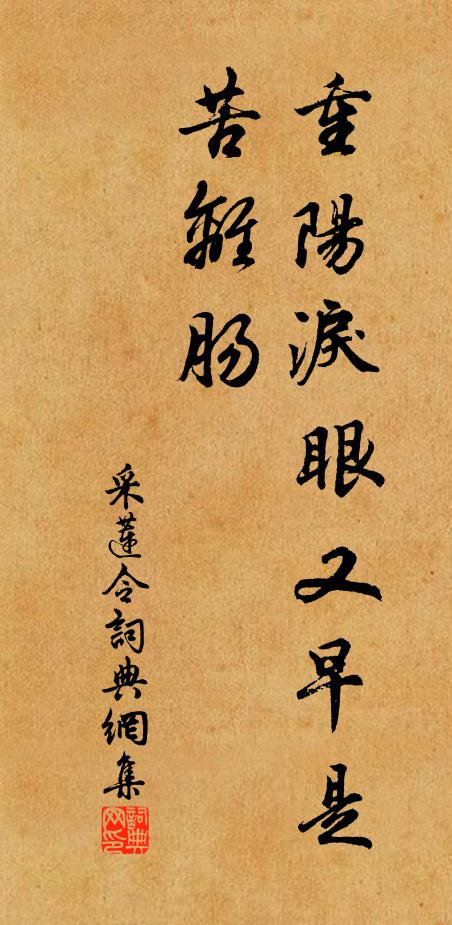 重陽淚眼又早是
苦離肠
采蓮令詞典網集
詞典网印